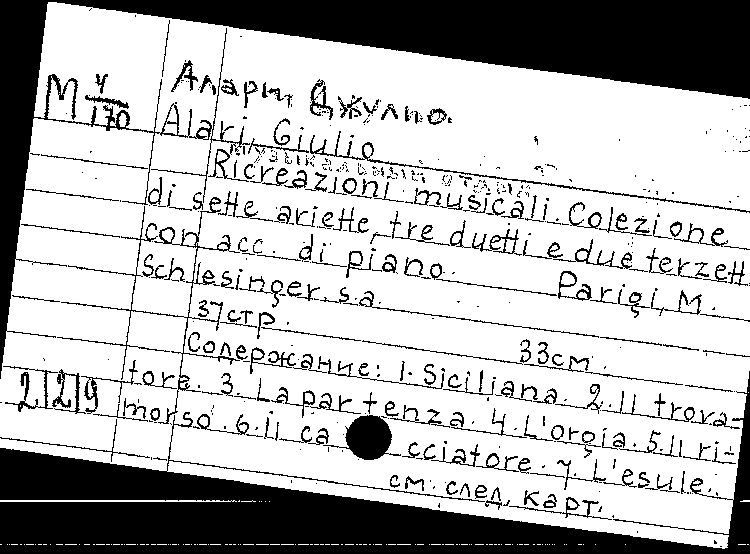 М 4/170
Алари, Джулио.
Alari, Giulio
МУЗЫКАЛЬНЫЙ ОТДЕЛ
Ricreazioni musicali. Colezione
di sette ariette, tre duetti e due terzett
con acc. di piano. Parigi, M.
Schlesinger. s.a.
37стр. 33см.
Содержание: 1. Siciliana. 2. Il trova-
tore. 3. La partenza. 4. L'orgia. 5. Il ri-
morso. 6. il ca cciatore. 7. L'esule.
см. след. карт.
2|2|9